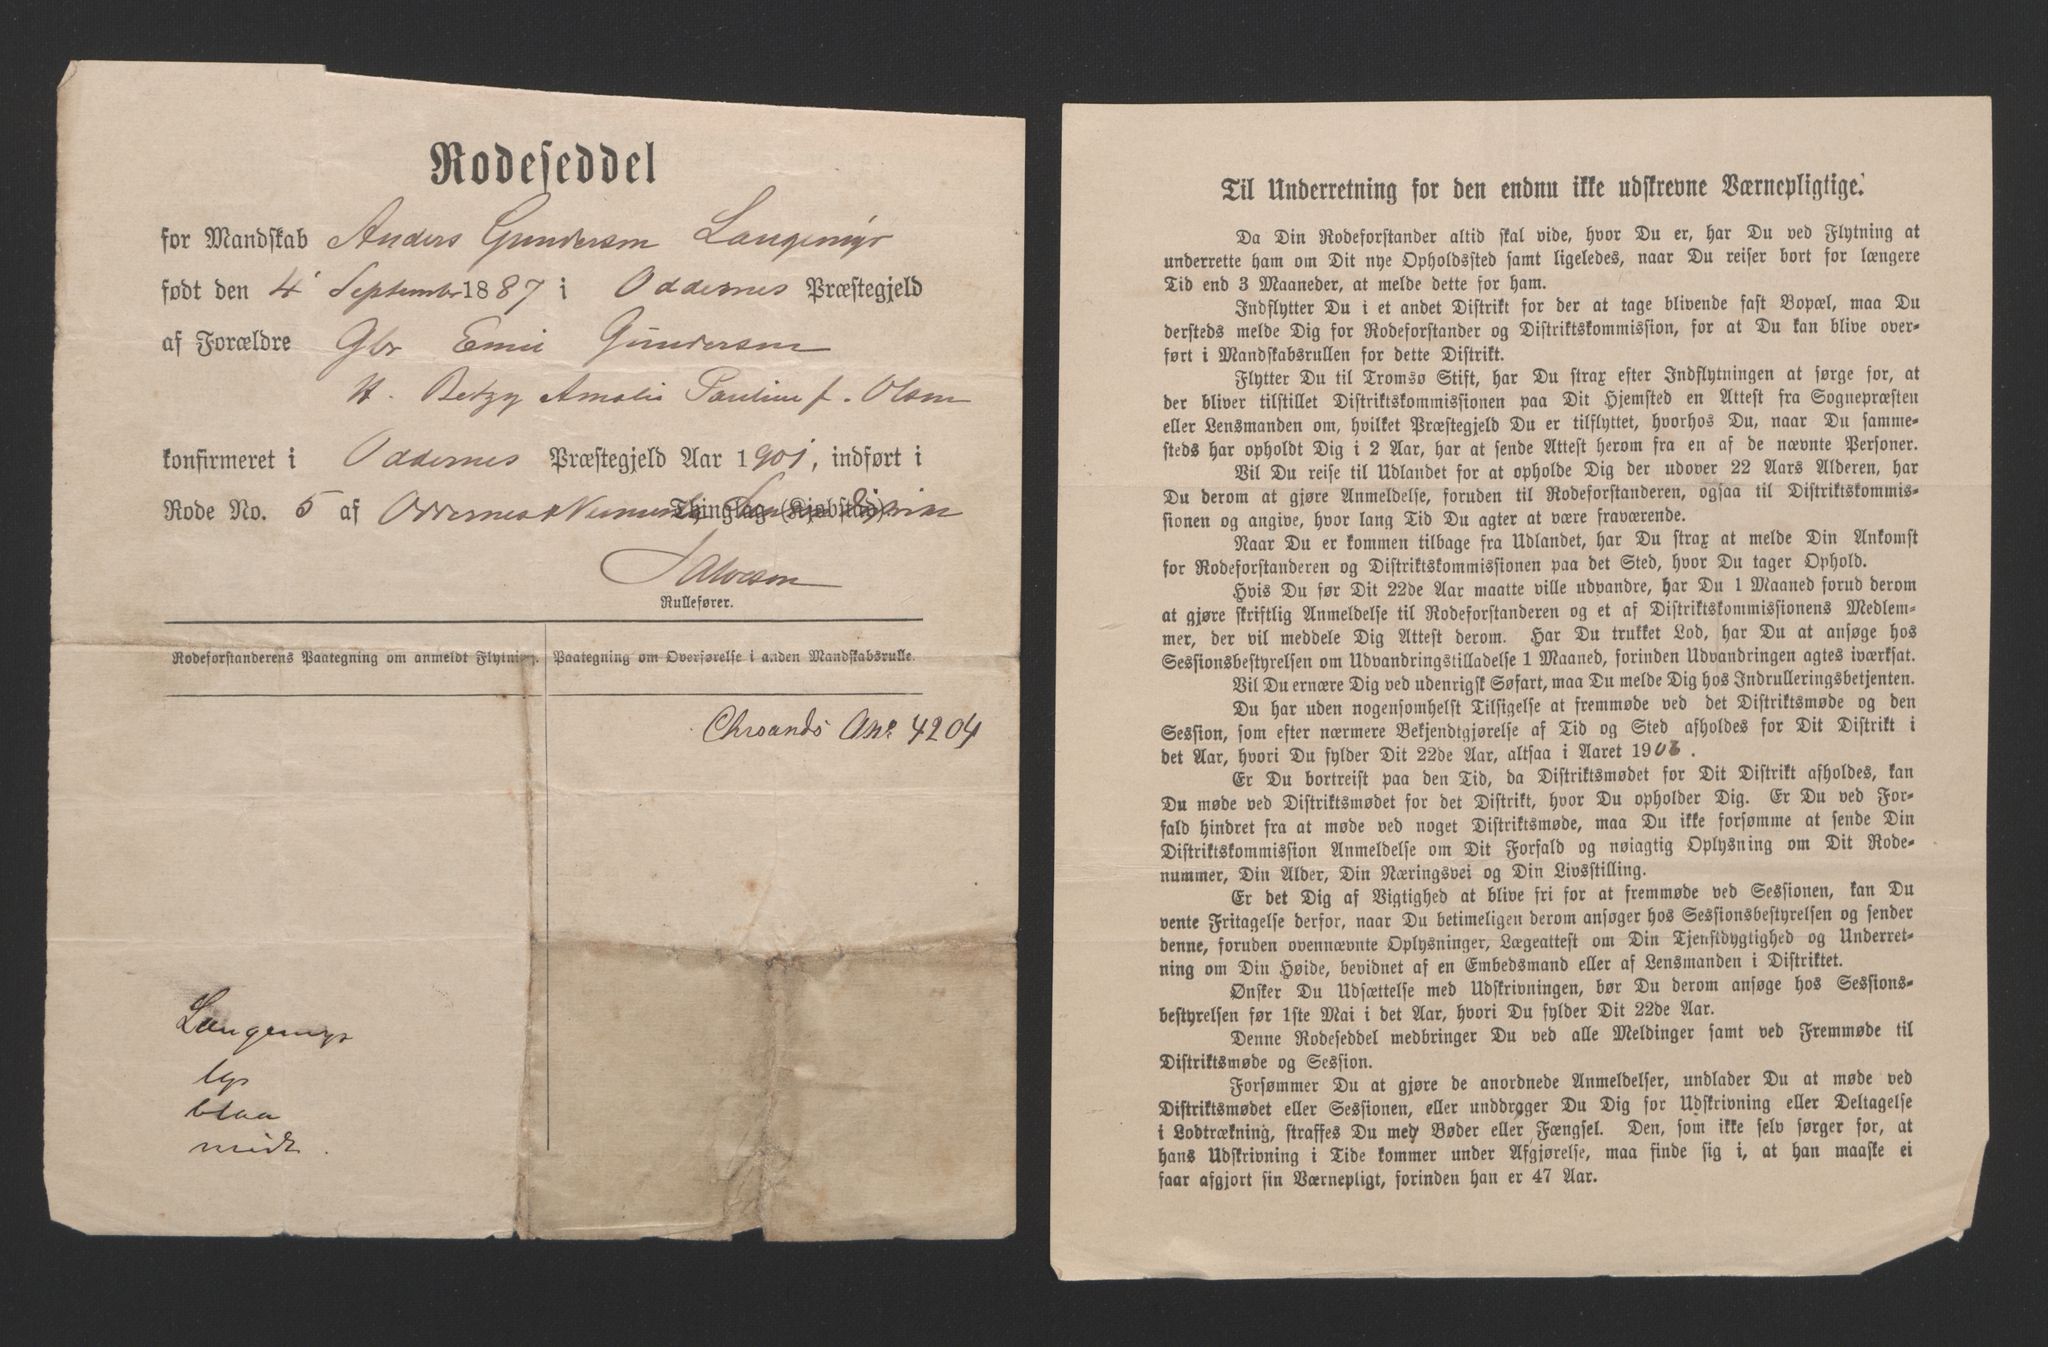 Rodeseddel
for Mandskab Anders Gundersen Langemyr
født den 4' September 1887 i Oddernes Præstegjeld
af Forældre Gbr Emil Gundersen
H. Betzy Amalie Pauline f. Olsen
konfirmeret i Oddernes Præstegjeld Aar 1901, indført i
Rode No. 5 af Oddernes Thinglag (Kjøbstad)
Rullefører.
Rodeforstanderens Paategning om anmeldt Flytning.
Paategning om Overførelse i anden Mandskabsrulle.
Chrsands A No 4204
Langemyr
lys
blaa
midt.
Til Underretning for den endnu ikke udskrevne Værnepligtige.
Da Din Rodeforstander altid skal vide, hvor Du er, har Du ved Flytning at
underrette ham om Dit nye Opholdssted samt ligeledes, naar Du reiser bort for længere
Tid end 3 Maaneder, at melde dette for ham.
Indflytter Du i et andet Distrikt for der at tage blivende fast Bopæl, maa Du
dersteds melde Dig for Rodeforstander og Distriktskommission, for at Du kan blive over-
ført i Mandskabsrullen for dette Distrikt.
Flytter Du til Tromsø Stift, har Du strax efter Indflytningen at sørge for, at
der bliver tilstillet Distriktskommissionen paa Dit Hjemsted en Attest fra Sognepræsten
eller Lensmanden om, hvilket Præstegjeld Du er tilflyttet, hvorhos Du, naar Du samme-
steds har opholdt Dig i 2 Aar, har at sende Attest herom fra en af de nævnte Personer.
Vil Du reise til Udlandet for at opholde Dig der udover 22 Aars Alderen, har
Du derom at gjøre Anmeldelse, foruden til Rodeforstanderen, ogsaa til Distriktskommis-
sionen og angive, hvor lang Tid Du agter at være fraværende.
Naar Du er kommen tilbage fra Udlandet, har Du strax at melde Din Ankomst
for Rodeforstanderen og Distriktskommissionen paa det Sted, hvor Du tager Ophold.
Hvis Du før Dit 22de Aar maatte ville udvandre, har Du 1 Maaned forud derom
at gjøre skriftlig Anmeldelse til Rodeforstanderen og et af Distriktskommissionens Medlem-
mer, der vil meddele Dig Attest derom. Har Du trukket Lod, har Du at ansøge hos
Sessionsbestyrelsen om Udvandringstilladelse 1 Maaned, forinden Udvandringen agtes iværksat.
Vil Du ernære Dig ved udenrigsk Søfart, maa Du melde Dig hos Indrulleringsbetjenten.
Du har uden nogensomhelst Tilsigelse at fremmøde ved det Distriktsmøde og den
Session, som efter nærmere Bekjendtgjørelse af Tid og Sted afholdes for Dit Distrikt i
det Aar, hvori Du fylder Dit 22de Aar, altsaa i Aaret 190 .
Er Du bortreist paa den Tid, da Distriktsmødet for Dit Distrikt afholdes, kan
Du møde ved Distriktsmødet for det Distrikt, hvor Du opholder Dig. Er Du ved For-
fald hindret fra at møde ved noget Distriktsmøde, maa Du ikke forsømme at sende Din
Distriktskommission Anmeldelse om Dit Forfald og nøiagtig Oplysning om Dit Rode-
nummer, Din Alder, Din Næringsvei og Din Livsstilling.
Er det Dig af Vigtighed at blive fri for at fremmøde ved Sessionen, kan Du
vente Fritagelse derfor, naar Du betimeligen derom ansøger hos Sessionsbestyrelsen og sender
denne, foruden ovennævnte Oplysninger, Lægeattest om Din Tjenstdygtighed og Underret-
ning om Din Høide, bevidnet af en Embedsmand eller af Lensmanden i Distriktet.
Ønsker Du Udsættelse med Udskrivningen, bør Du derom ansøge hos Sessions-
bestyrelsen før 1ste Mai i det Aar, hvori Du fylder Dit 22de Aar.
Denne Rodeseddel medbringer Du ved alle Meldinger samt ved Fremmøde til
Distriktsmøde og Session.
Forsømmer Du at gjøre de anordnede Anmeldelser, undlader Du at møde ved
Distriktsmødet eller Sessionen, eller unddrager Du Dig for Udskrivning eller Deltagelse
i Lodtrækning, straffes Du med Bøder eller Fængsel. Den, som ikke selv sørger for, at
hans Udskrivning i Tide kommer under Afgjørelse, maa finde sig i, at han maaske ei
faar afgjort sin Værnepligt, forinden han er 47 Aar.